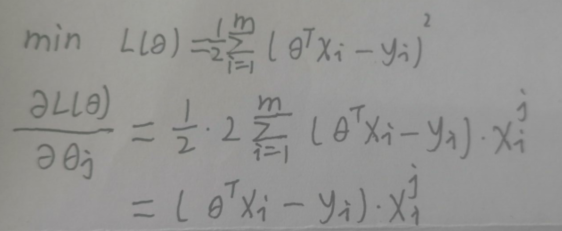 min L(θ) = 1/2 ∑_{i=1}^{m} (θ^T x_i − y_i)^2
∂L(θ)/∂θ_j = 1/2 · 2 ∑_{i=1}^{m} (θ^T x_i − y_i) · x_i^j
= (θ^T x_i − y_i) · x_i^j